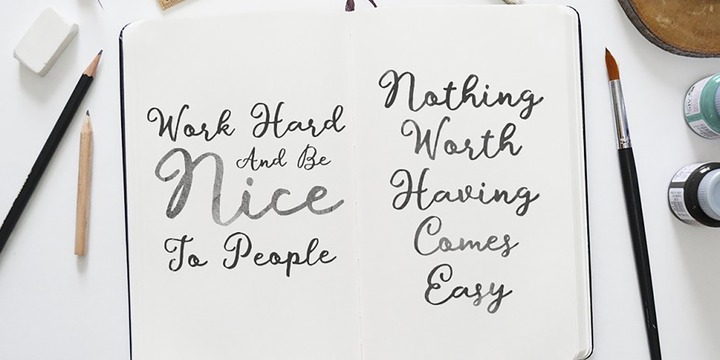 Work Hard
And Be
Nice
To People
Nothing
Worth
Having
Comes
Easy